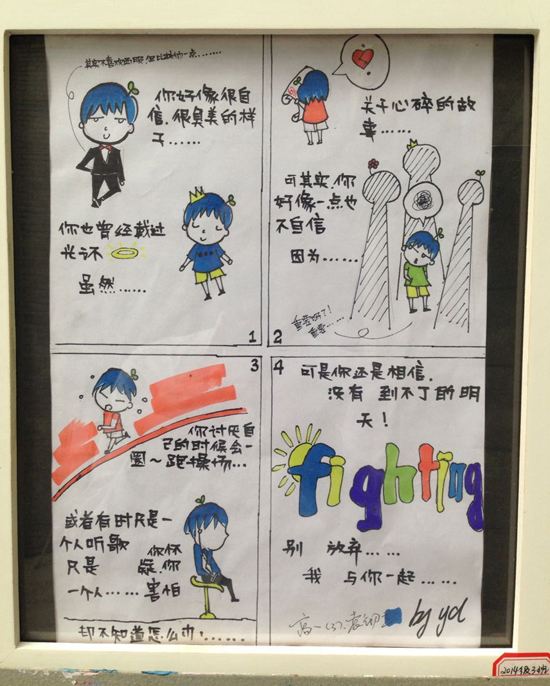 你好像很自
信.很臭美的样
子……
你也曾经戴过
光环
虽然……
1
关于心碎的故
事……
可其实.你
好像一点也
不自信
因为……
重要的人!
2
3
你讨厌自
己的时候会一
圈~跑操场…
或者有时只是一
个人听歌
只是
一个人……
你怀
疑.你
害怕
却不知道怎么办!……
4
可是你还是相信.
没有 到不了的明
天!
fighting
别 放弃……
我 与你一起……
高一(3).袁
by yd